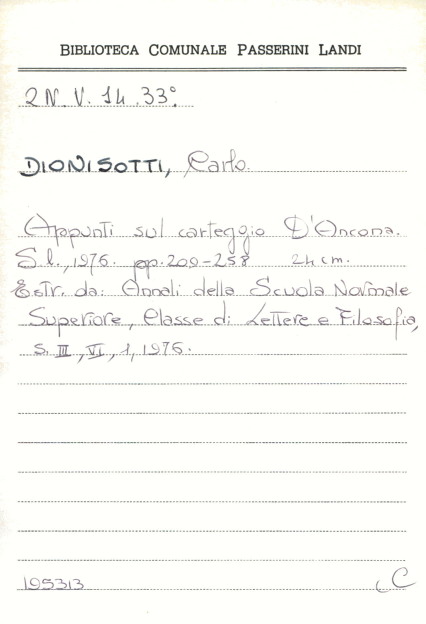 BIBLIOTECA COMUNALE PASSERINI LANDI
2N.V.14.33°
DIONISOTTI, Carlo.
Appunti sul carteggio D'Ancona.
S.l., 1976. pp. 209-258 24 cm.
Estr. da: Annali della Scuola Normale
Superiore, Classe di Lettere e Filosofia,
s. III, VI, 1, 1976.
195313 C